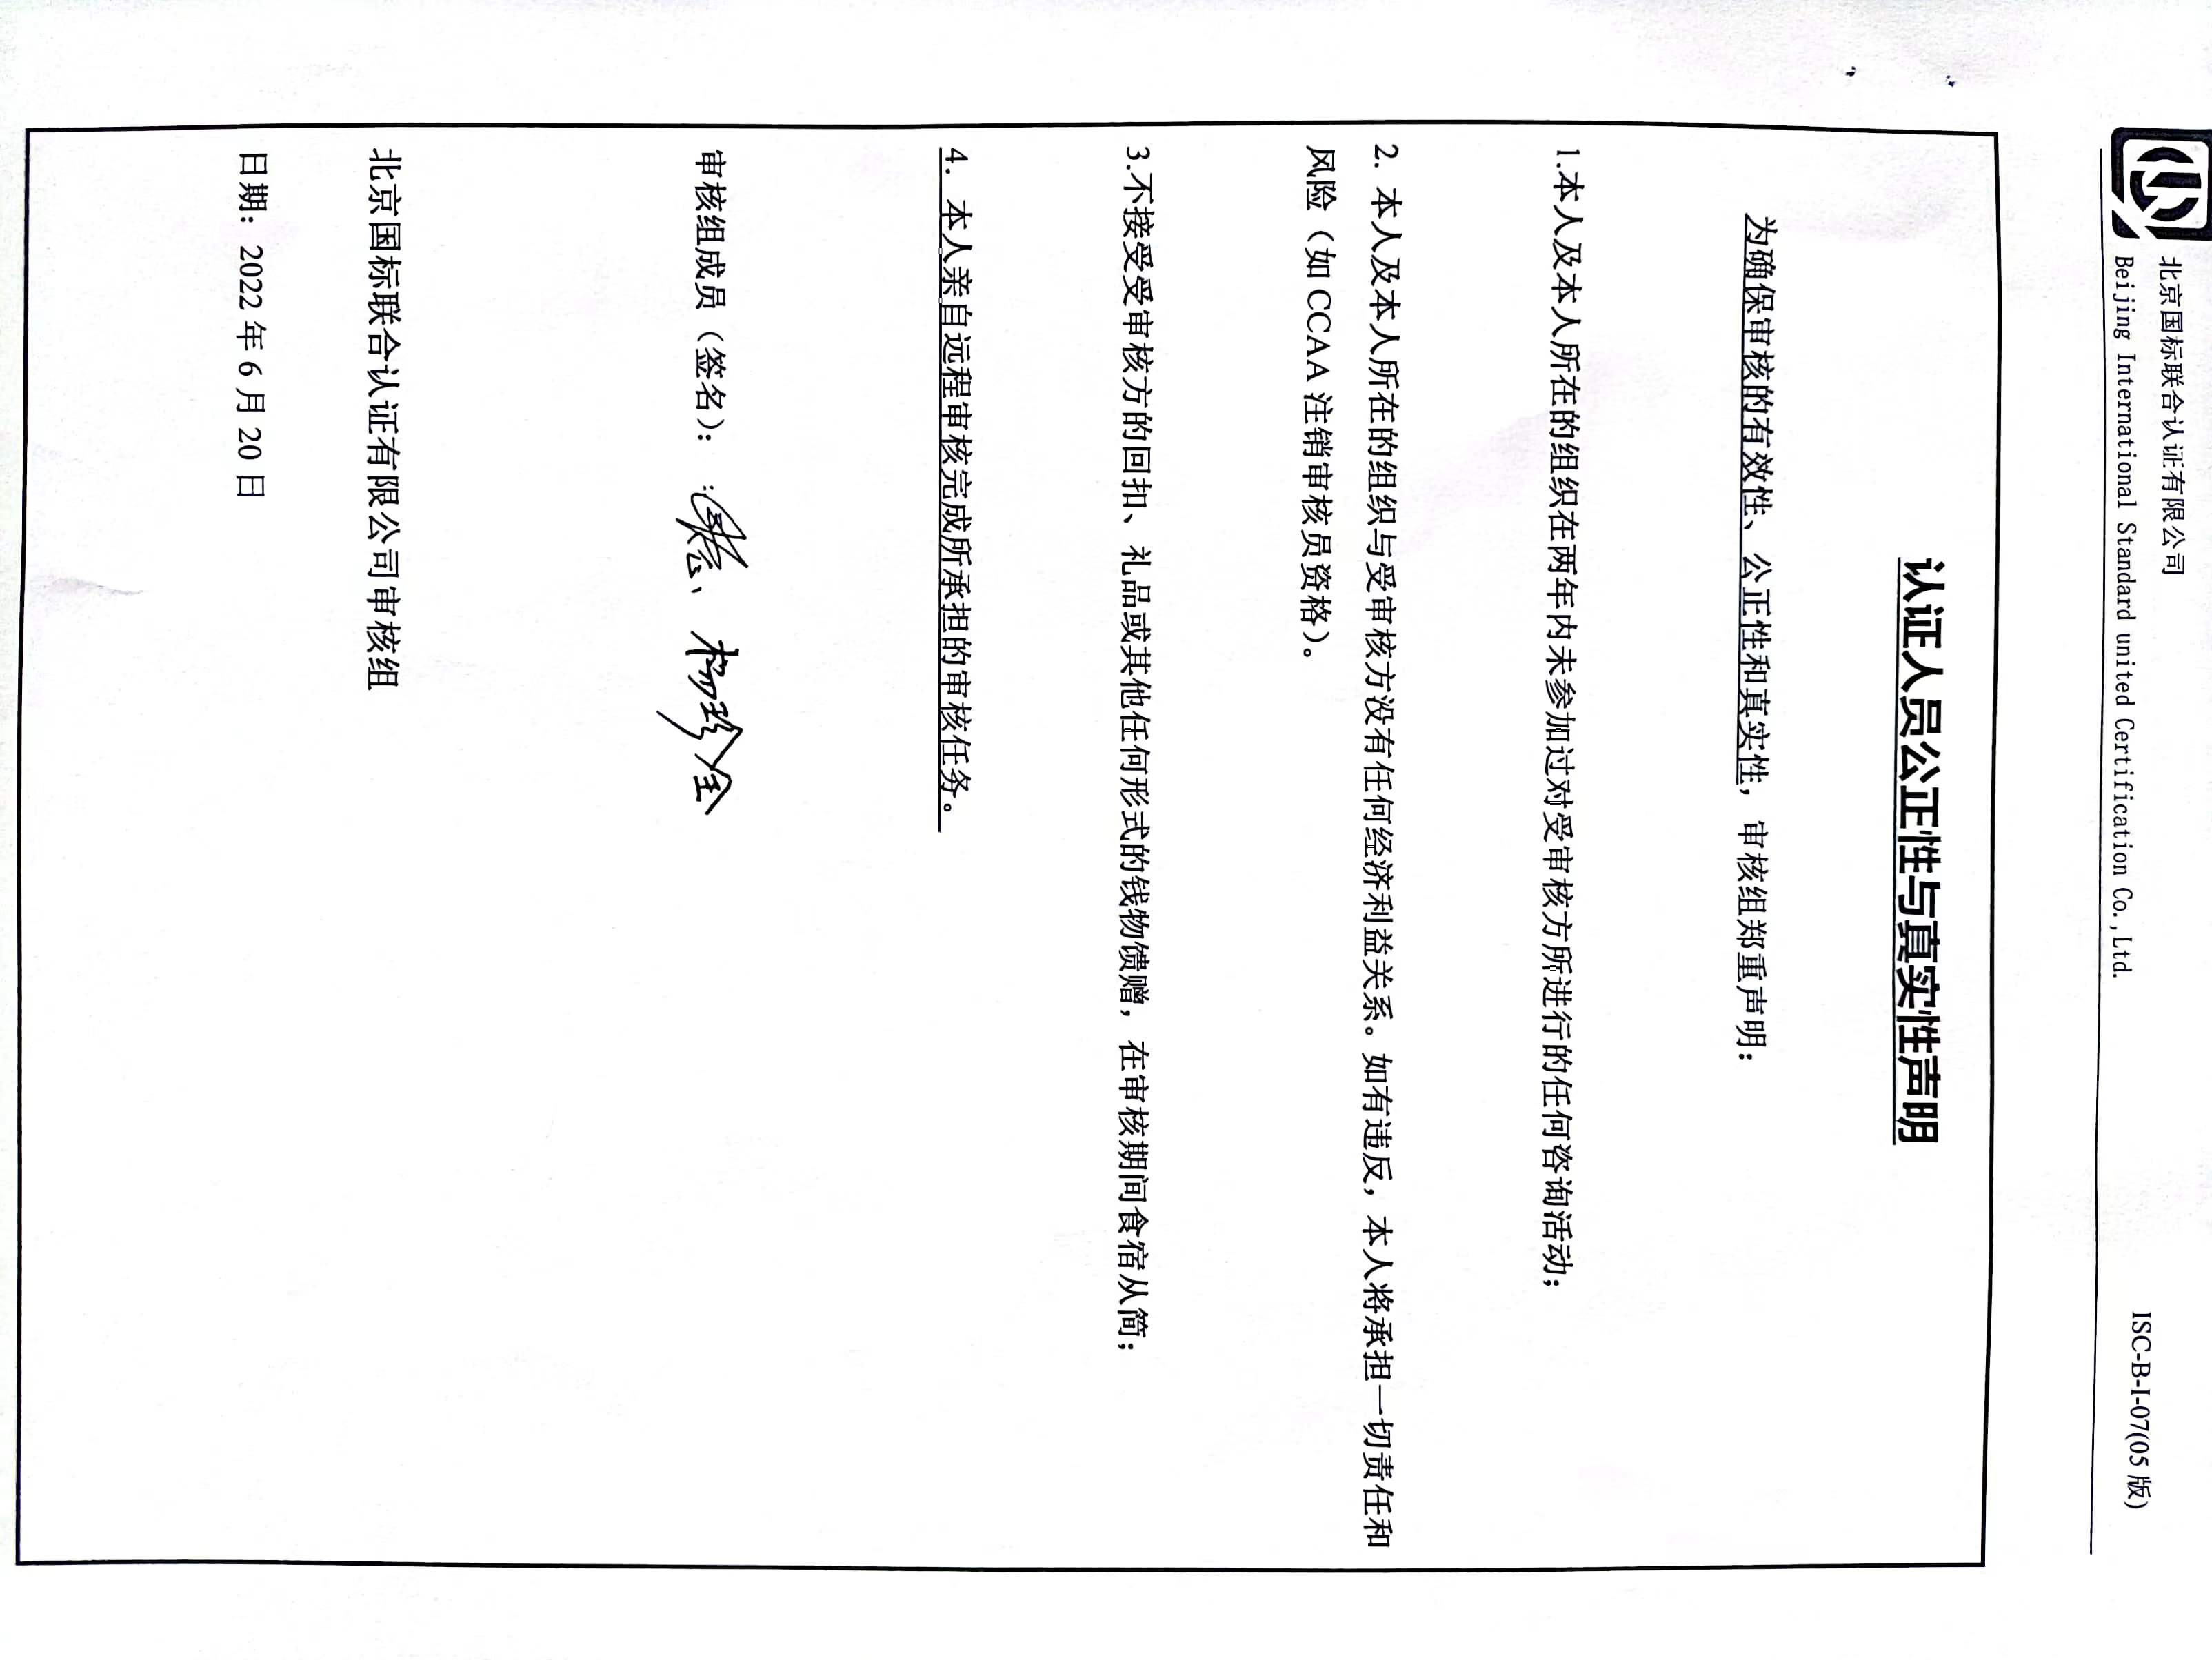 北京国标联合认证有限公司
Beijing International Standard united Certification Co.,Ltd.
ISC-B-I-07(05 版)
认证人员公正性与真实性声明
为确保审核的有效性、公正性和真实性，审核组郑重声明：
1.本人及本人所在的组织在两年内未参加过对受审核方所进行的任何咨询活动；
2. 本人及本人所在的组织与受审核方没有任何经济利益关系。如有违反，本人将承担一切责任和
风险（如 CCAA 注销审核员资格）。
3.不接受受审核方的回扣、礼品或其他任何形式的钱物馈赠，在审核期间食宿从简；
4. 本人亲自远程审核完成所承担的审核任务。
审核组成员（签名）：
北京国标联合认证有限公司审核组
日期：2022 年 6 月 20 日